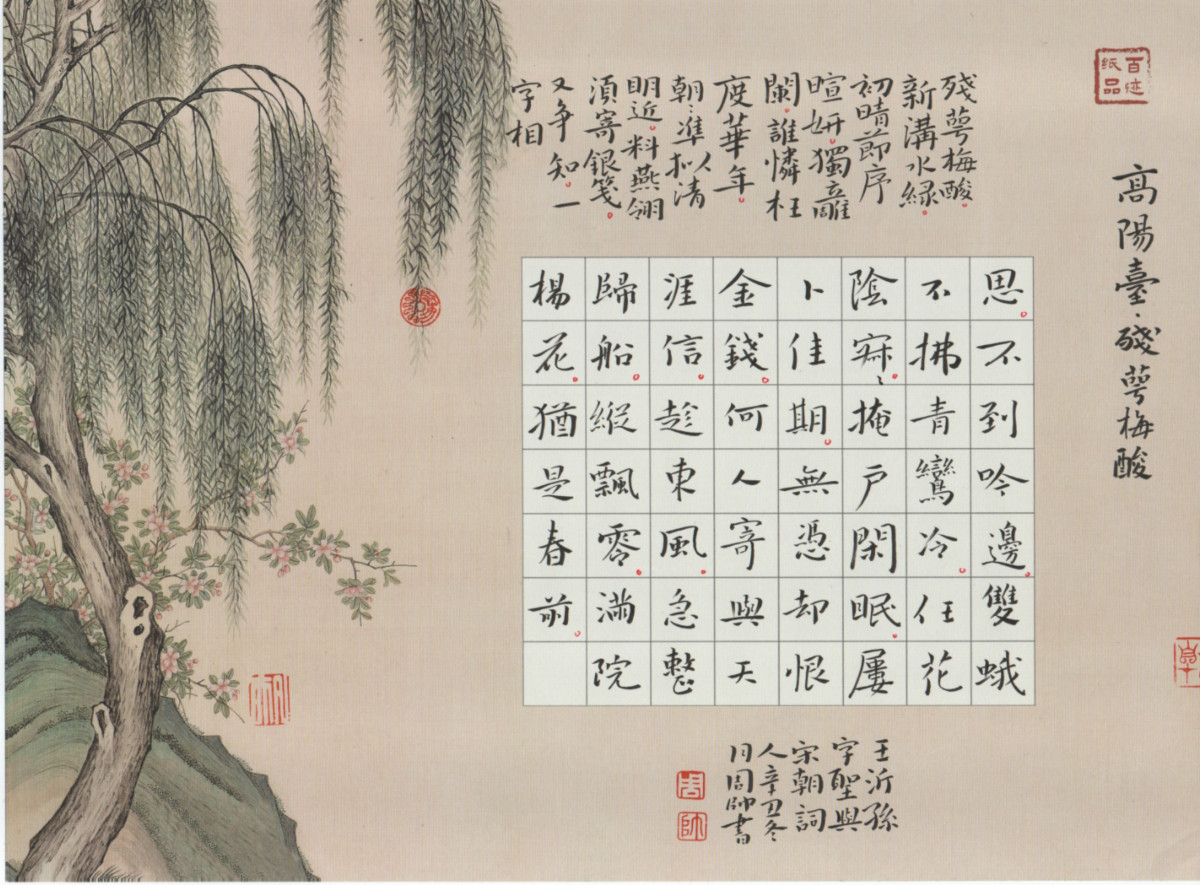 百迹
纸品
高陽臺·殘萼梅酸
殘萼梅酸。
新溝水綠。
初晴節序
暄妍。獨立雕
闌。誰憐枉
度華年。
朝〻準擬清
明近。料燕翎
須寄銀箋。
又爭知。一
字相
思。不到吟邊。雙蛾
不拂青鸞冷。任花
陰寂〻。掩戶閑眠。屢
卜佳期。無憑却恨
金錢。何人寄與天
涯信。趁東風。急整
歸船。縱飄零。滿院
楊花。猶是春前。
王沂孫
字聖與
宋朝詞
人辛丑冬
月周帥書